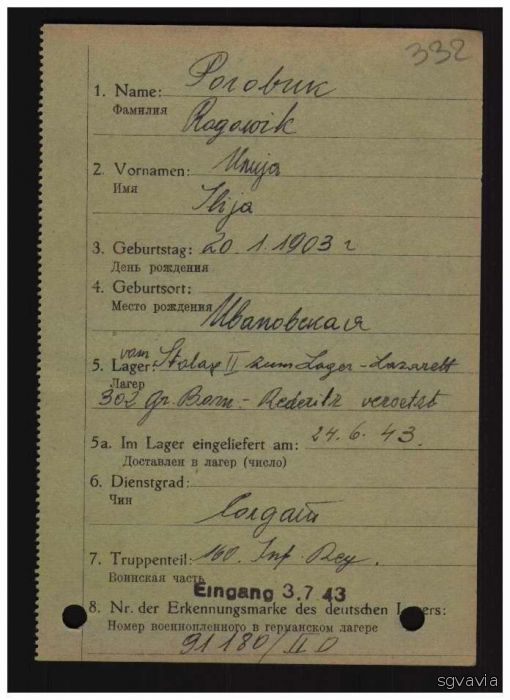 332
1. Name: Роговик
Фамилия
Rogowik
2. Vornamen: Илија
Имя
Ilija
3. Geburtstag: 20.1.1903 г
День рождения
4. Geburtsort:
Место рождения
Ивановская
vom
5. Lager: Stalag II zum Lager-Lazarett
Лагер
302 Gr. Born.- Rederitz versetzt
5a. Im Lager eingeliefert am: 24.6.43.
Доставлен в лагер (число)
6. Dienstgrad:
Чин
Солдат
7. Truppenteil: 160. Inf. Reg.
Воинская часть
Eingang 3.7.43
8. Nr. der Erkennungsmarke des deutschen Lagers:
Номер военнопленного в германском лагере
91180/II D
sgvavia